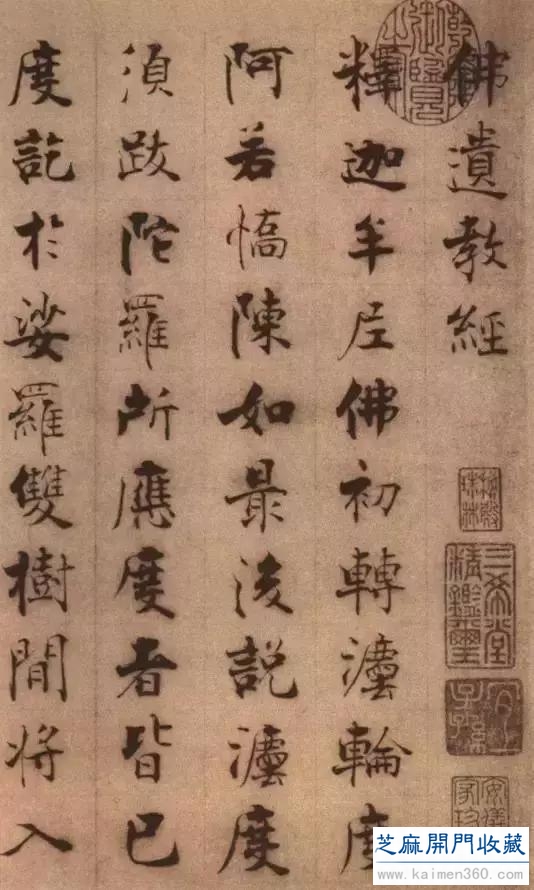 佛遺教經
釋迦牟尼佛初轉灋輪度
阿若憍陳如最後説灋度
須跋陀羅所應度者皆已
度訖於娑羅雙樹間将入
三希堂精鑑璽
宜子孫
芝麻開門收藏
www.kaimen360.com